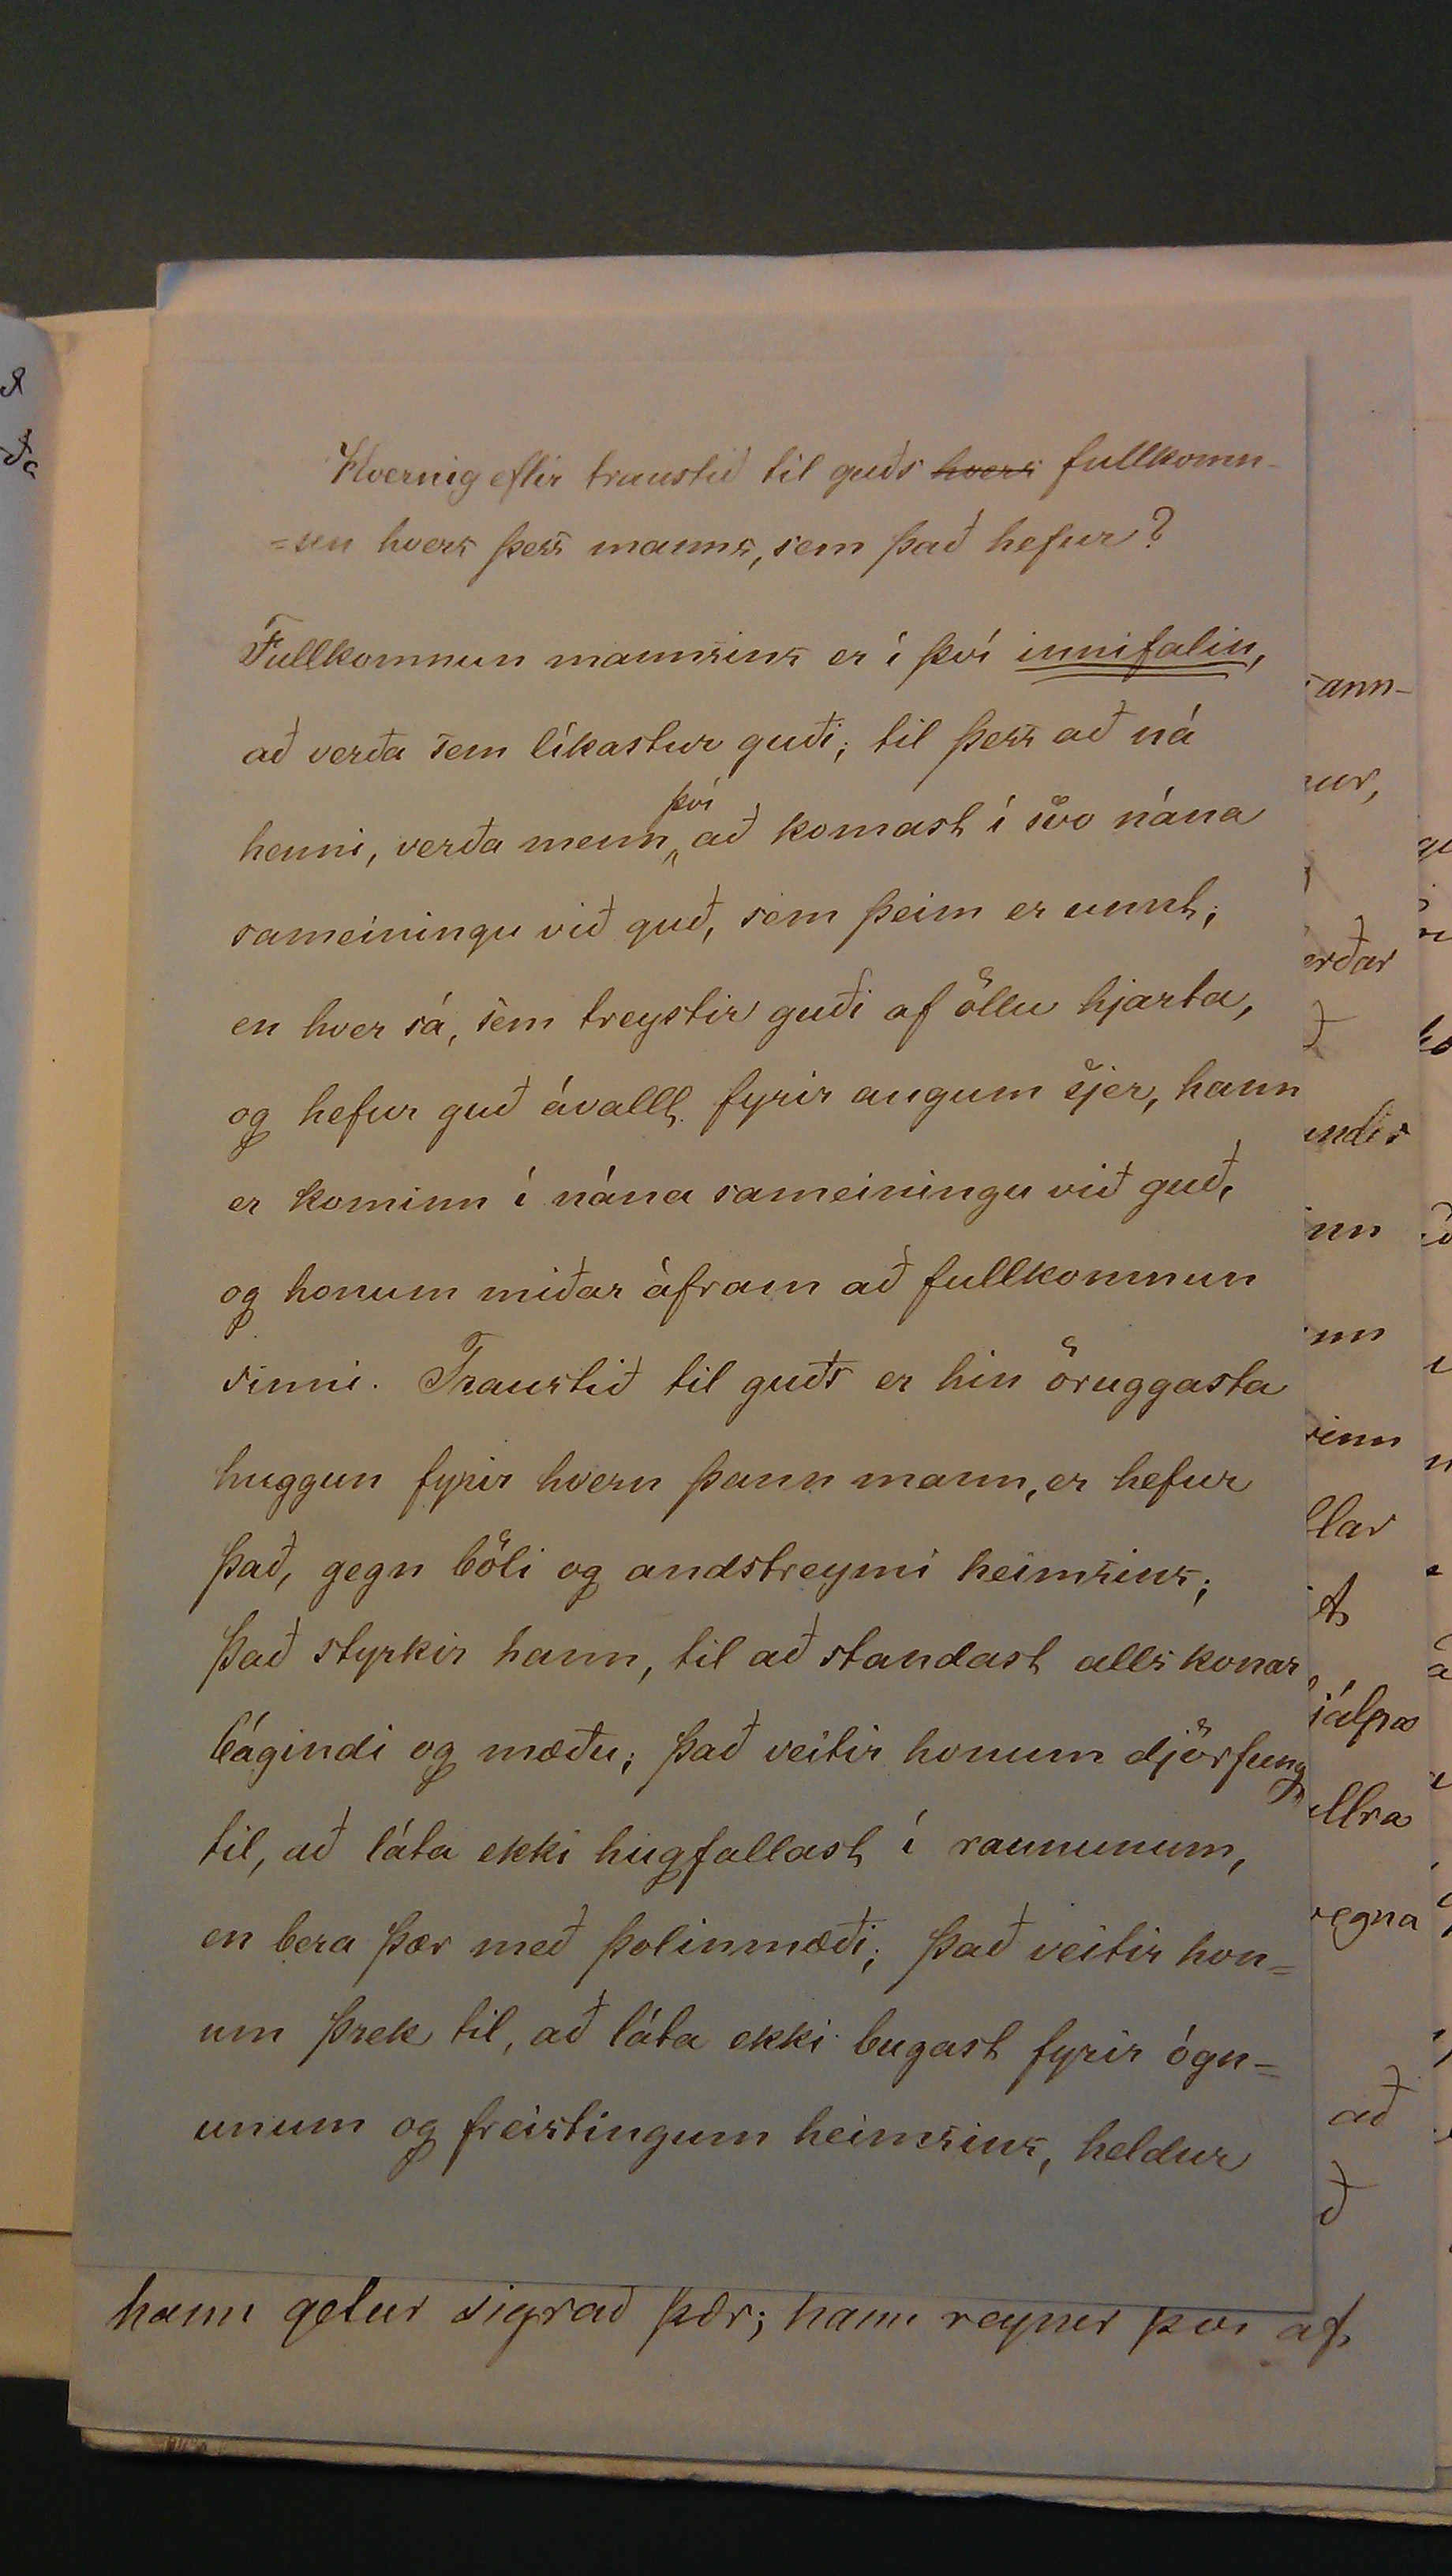 Hvernig eflir traustið til guðs hvers fullkomn-
=un hvers þess manns, sem það hefur?
Fullkomnun mannsins er í því innifalin,
að verða sem líkastur guði; til þess að ná
því
henni, verða menn„ að komast í svo nána
sameiningu við guð, sem þeim er unnt;
en hver sá, sem treystir guði af öllu hjarta,
og hefur guð ávallt fyrir augum sjer, hann
er kominn í nána sameiningu við guð,
og honum miðar áfram að fullkomnun
sinni. Traustið til guðs er hin öruggasta
huggun fyrir hvern þann mann, er hefur
það, gegn böli og andstreymi heimsins;
Það styrkir hann, til að standast alls konar
bágindi og mæðu; það veitir honum djörfung
til, að láta ekki hugfallast í raununum,
en bera þær með þolinmæði; það veitir hon=
um þrek til, að láta ekki bugast fyrir ógn=
unum og freistingum heimsins, heldur
hann getur sigrað þær; hann reynir því af